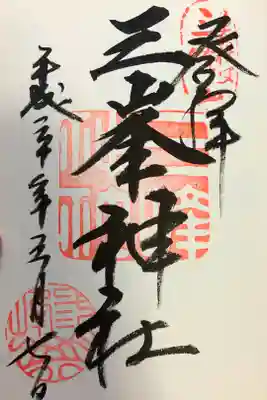 登拝
三峯神社
平成三十年五月七日